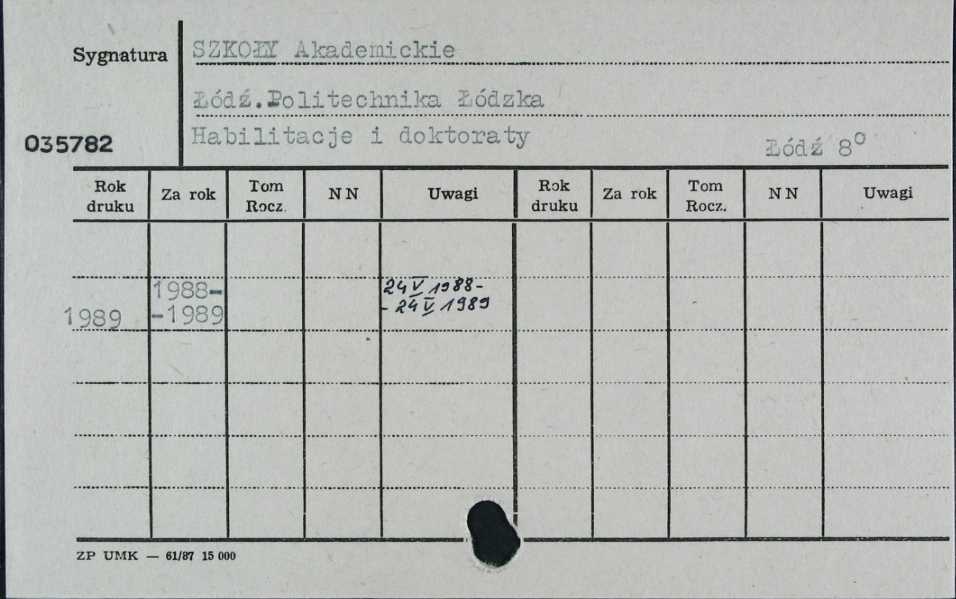 Sygnatura SZKOŁY Akademickie
Łódź.Politechnika Łódzka
035782 Habilitacje i doktoraty Łódź 8°
Rok druku Za rok Tom Rocz. NN Uwagi Rok druku Za rok Tom Rocz. NN Uwagi
1988- 24 V 1988-
1989 -1989 - 24 V 1989
ZP UMK — 61/87 15 000